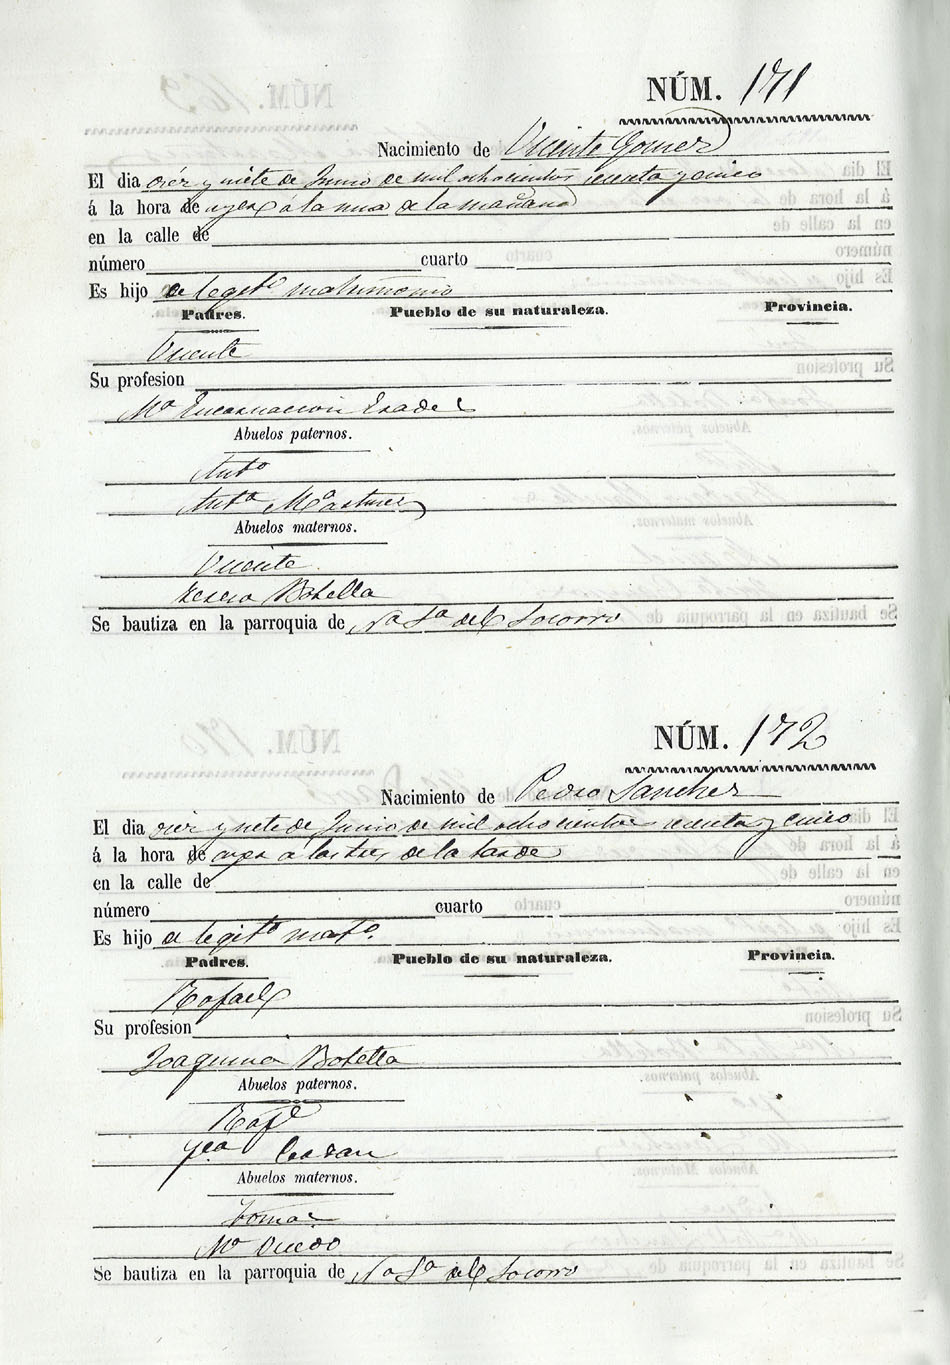 NÚM. 171
Nacimiento de Vicente Gomez
El dia diez y siete de Junio de mil ochocientos sesenta y cinco
á la hora de ayer á la una de la mañana
en la calle de
número cuarto
Es hijo de legitº matrimonio
Padres. Pueblo de su naturaleza. Provincia.
Vicente
Su profesion
Mª Encarnacion
Abuelos paternos.
Antº
Antª Martinez
Abuelos maternos.
Vicente
Teresa Botella
Se bautiza en la parroquia de Nª Sª del Socorro
NÚM. 172
Nacimiento de Pedro Sanchez
El dia diez y siete de Junio de mil ochocientos sesenta y cinco
á la hora de ayer a las tres de la tarde
en la calle de
número cuarto
Es hijo de legitº matº.
Padres. Pueblo de su naturaleza. Provincia.
Rafael
Su profesion
Joaquina Botella
Abuelos paternos.
Rafˡ
Abuelos maternos.
Tomas
Mª
Se bautiza en la parroquia de Nª Sª del Socorro